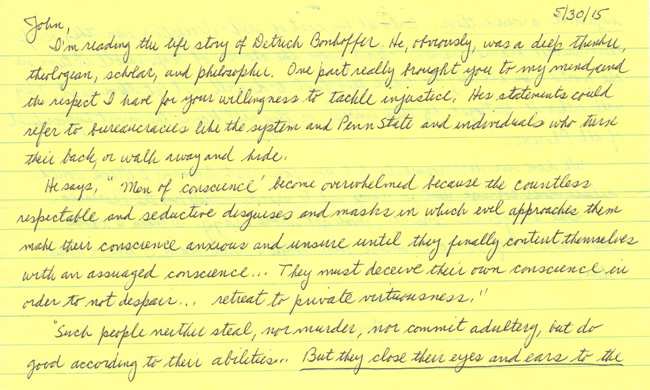 5/30/15
John,
I'm reading the life story of Detrich Bonhoffer. He, obviously, was a deep thinker,
theologian, scholar, and philosopher. One part really brought you to my mind, and
the respect I have for your willingness to tackle injustice. His statements could
refer to bureaucracies like the system and Penn State and individuals who turn
their back, or walk away and hide.
He says, "Men of 'conscience' become overwhelmed because the countless
respectable and seductive disguises and masks in which evil approaches them
make their conscience anxious and unsure until they finally content themselves
with an assuaged conscience... They must deceive their own conscience in
order to not despair... retreat to private virtuousness."
"Such people neither steal, nor murder, nor commit adultery, but do
good according to their abilities... But they close their eyes and ears to the